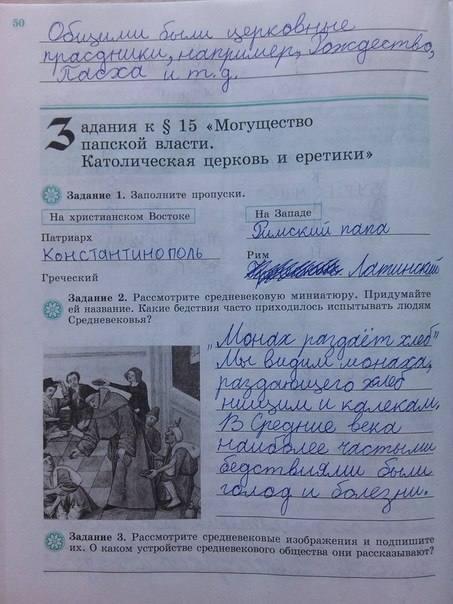 50
Общими были церковные
праздники, например, Рождество,
Пасха и т.д.
Задания к § 15 «Могущество
папской власти.
Католическая церковь и еретики»
Задание 1. Заполните пропуски.
На христианском Востоке
На Западе
Патриарх
Римский папа
Константинополь
Рим
Греческий
Латинский
Задание 2. Рассмотрите средневековую миниатюру. Придумайте
ей название. Какие бедствия часто приходилось испытывать людям
Средневековья?
„Монах раздаёт хлеб"
Мы видим монаха,
раздающего хлеб
нищим и калекам.
В Средние века
наиболее частыми
бедствиями были
голод и болезни.
Задание 3. Рассмотрите средневековые изображения и подпишите
их. О каком устройстве средневекового общества они рассказывают?